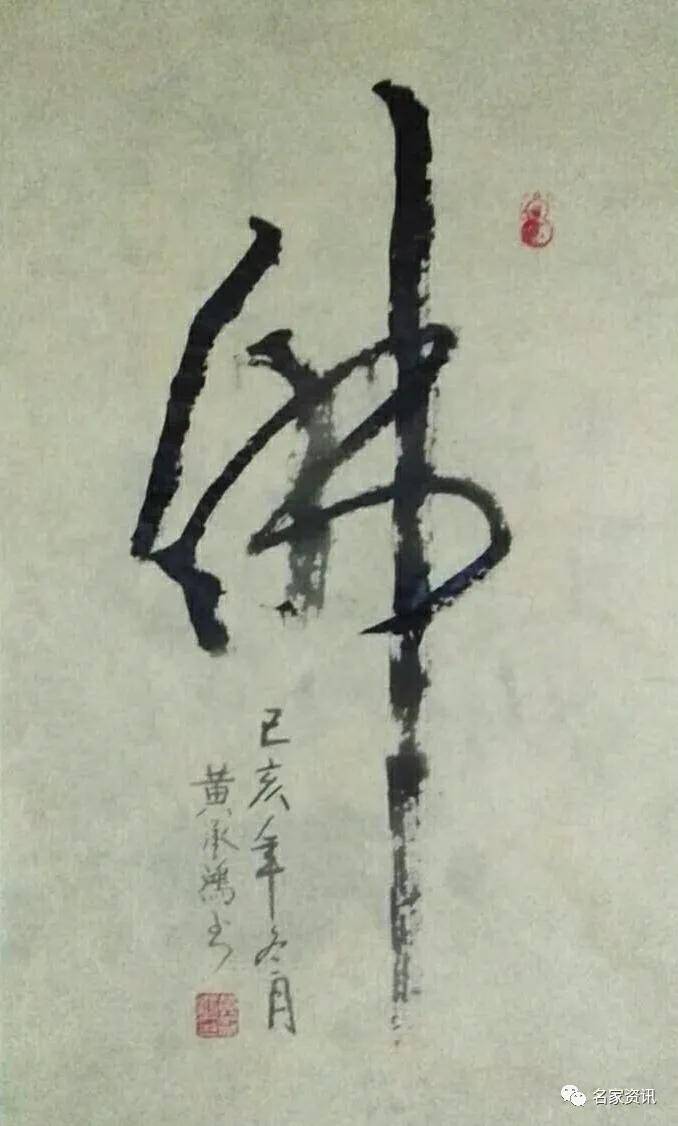 佛
己亥年冬月
黄承鸿书
名家资讯